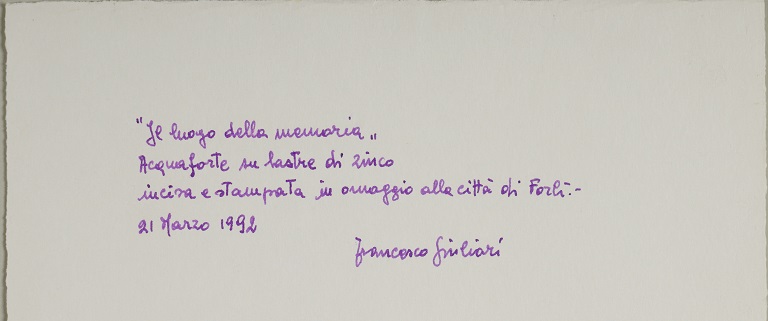 "Il luogo della memoria„
Acquaforte su lastre di zinco
incisa e stampata in omaggio alla città di Forlì.-
21 Marzo 1992
Francesco Giuliari